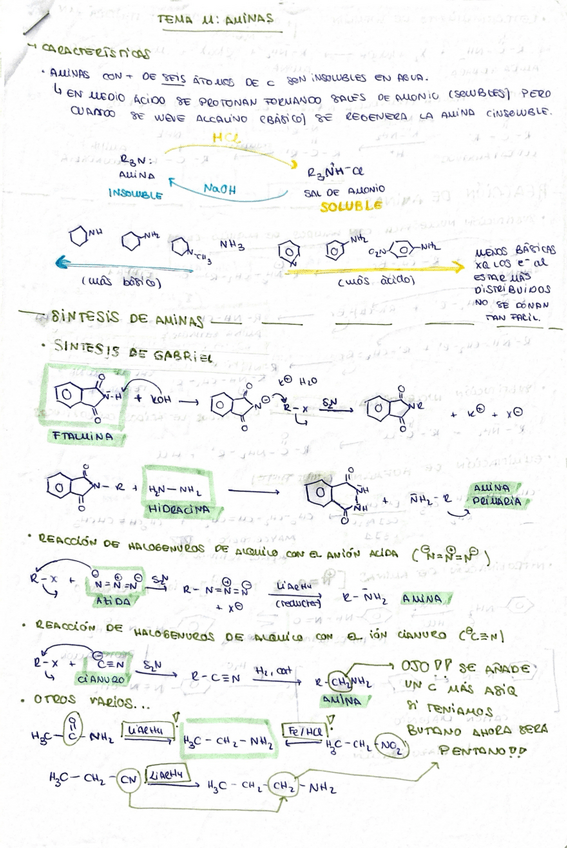 TEMA 11: AMINAS
→ CARACTERÍSTICAS
• AMINAS CON + DE SEIS ÁTOMOS DE C SON INSOLUBLES EN AGUA.
↳ EN MEDIO ÁCIDO SE PROTONAN FORMANDO SALES DE AMONIO (SOLUBLES) PERO
CUANDO SE VUELVE ALCALINO (BÁSICO) SE REGENERA LA AMINA (INSOLUBLE.
HCl
R₃N: R₃NH-Cl
AMINA SAL DE AMONIO
INSOLUBLE NaOH SOLUBLE
NH NH₂ N CH₃ NH₃ N NH₂ O₂N NH₂
(más básico) (más ácido)
MENOS BÁSICAS
XQ LOS e⁻ al
ESTAR MÁS
DISTRIBUIDOS
NO SE DONAN
TAN FÁCIL.
SÍNTESIS DE AMINAS
• SINTESIS DE GABRIEL
O N-H O + KOH → O N⊖ O K⊕ H₂O R-X SN2 → O N-R O + K⊕ + X⊖
FTALIMINA
O N-R O + H₂N-NH₂ → O NH NH O + NH₂-R AMINA
HIDRACINA PRIMARIA
• REACCIÓN DE HALOGENUROS DE ALQUILO CON EL ANIÓN ACIDA (⊖N=N⊕=N⊖)
R-X + ⊖N=N⊕=N⊖ SN2 → R-N=N⊕=N⊖ LiAlH4 → R-NH₂ AMINA
AZIDA + X⊖ (reductor)
• REACCIÓN DE HALOGENUROS DE ALQUILO CON EL IÓN CIANURO (⊖C≡N)
R-X + ⊖C≡N SN2 → R-C≡N H₂, cat → R-CH₂NH₂
CIANURO AMINA
OJO!! SE AÑADE
UN C MÁS ASIQ
SI TENÍAMOS
BUTANO AHORA SERA
PENTANO!!
• OTROS VARIOS...
H₃C-C(O)-NH₂ LiAlH4 → H₃C-CH₂-NH₂ ← Fe/HCl H₃C-CH₂-NO₂
H₃C-CH₂-CN LiAlH4 → H₃C-CH₂-CH₂-NH₂